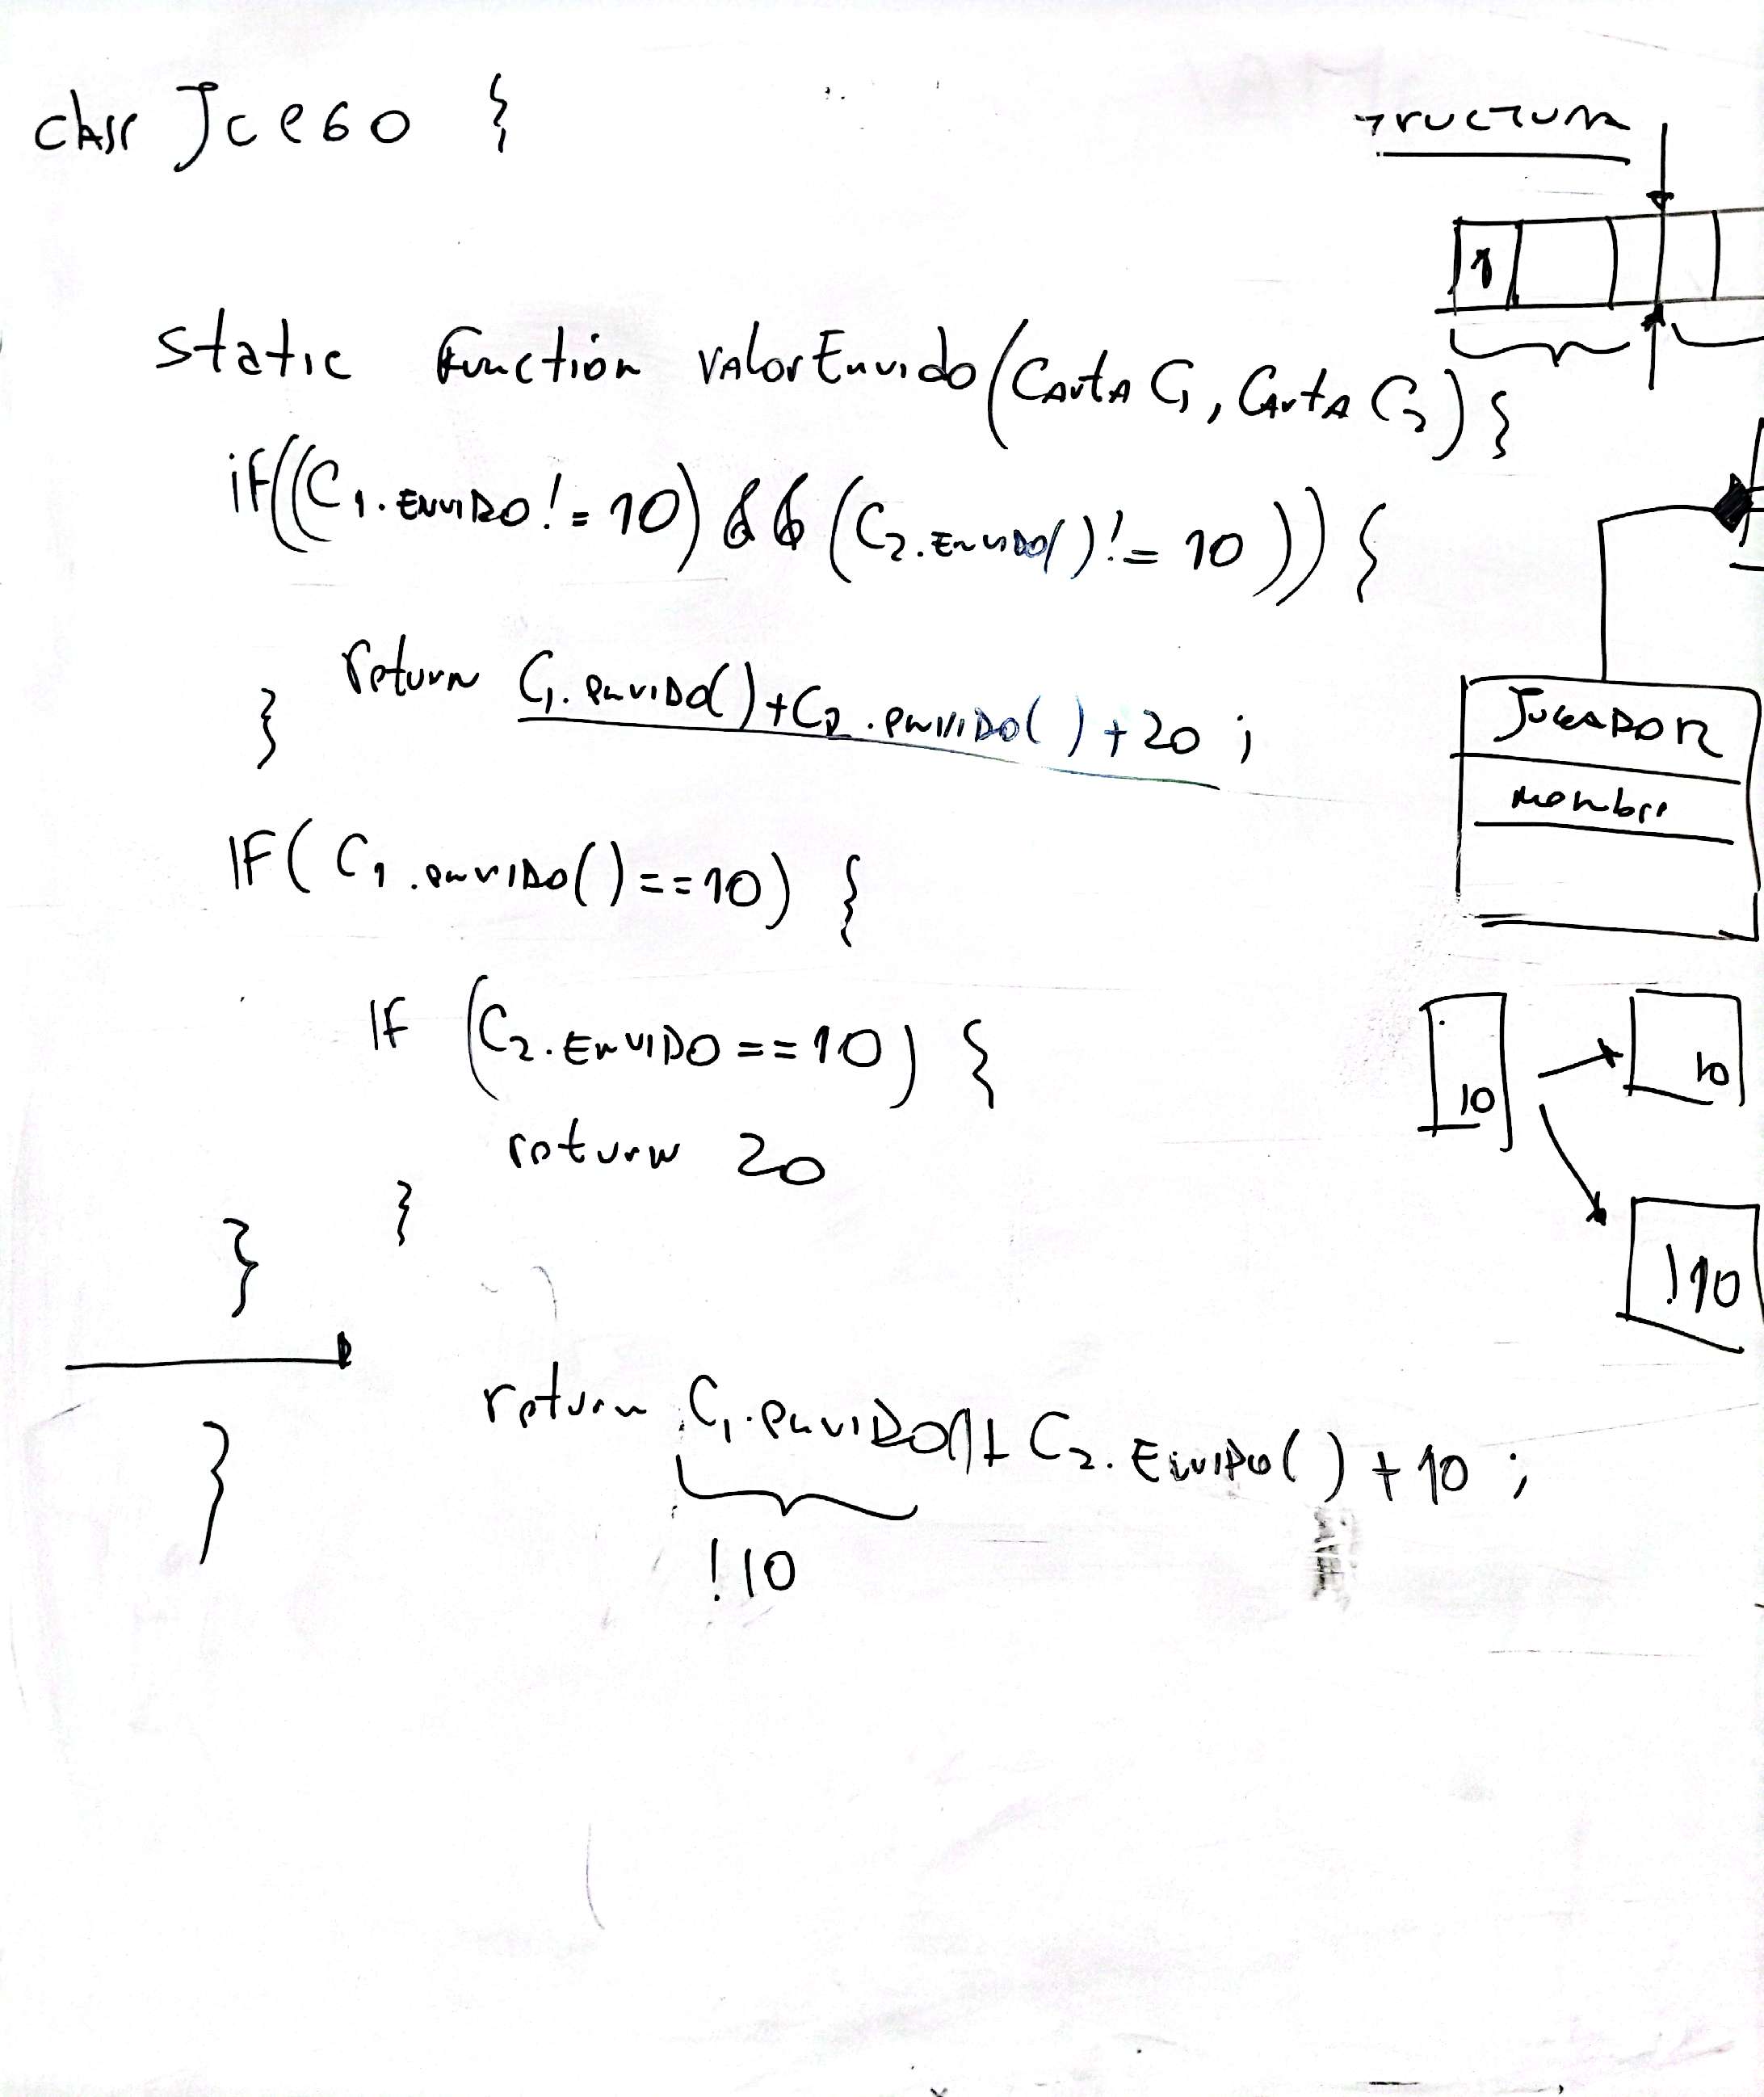 class Juego {
static function valorEnvido(Carta C1, Carta C2) {
if((C1.ENVIDO != 10) && (C2.ENVIDO() != 10)) {
return C1.envido() + C2.envido() + 20 ;
}
IF( C1.envido() == 10) {
If (C2.ENVIDO == 10) {
return 20
}
}
return C1.envido() + C2.Envido() + 10 ;
}
!10
TRUCTURA
1
JUGADOR
nombre
10
10
!10